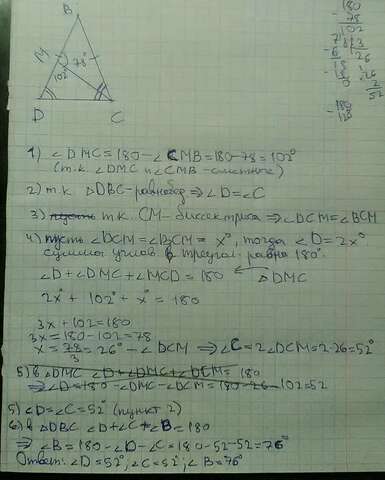 B
M
78°
102°
D
C
180
- 78
102
78 | 3
- 6 26
18
- 18
0
26
2
52
- 180
1) ∠DMC = 180 - ∠CMB = 180 - 78 = 102°
(т.к. ∠DMC и ∠CMB - смежные)
2) т.к. △DBC - равнобед ⇒ ∠D = ∠C
3) пусть т.к. CM - биссектриса ⇒ ∠DCM = ∠BCM
4) пусть ∠DCM = ∠BCM = x°, тогда ∠D = 2x°
сумма углов в треугол. равна 180°.
∠D + ∠DMC + ∠MCD = 180 ← △DMC
2x° + 102° + x° = 180
3x + 102 = 180
3x = 180 - 102 = 78
x = 78/3 = 26° - ∠DCM ⇒ ∠C = 2∠DCM = 2·26 = 52°
5) в △DMC ∠D + ∠DMC + ∠DCM = 180
⇒ ∠D = 180 - ∠DMC - ∠DCM = 180 - 26 - 102 = 52
5) ∠D = ∠C = 52° (пункт 2)
6) в △DBC ∠D + ∠C + ∠B = 180
⇒ ∠B = 180 - ∠D - ∠C = 180 - 52 - 52 = 76°
Ответ: ∠D = 52°, ∠C = 52°; ∠B = 76°